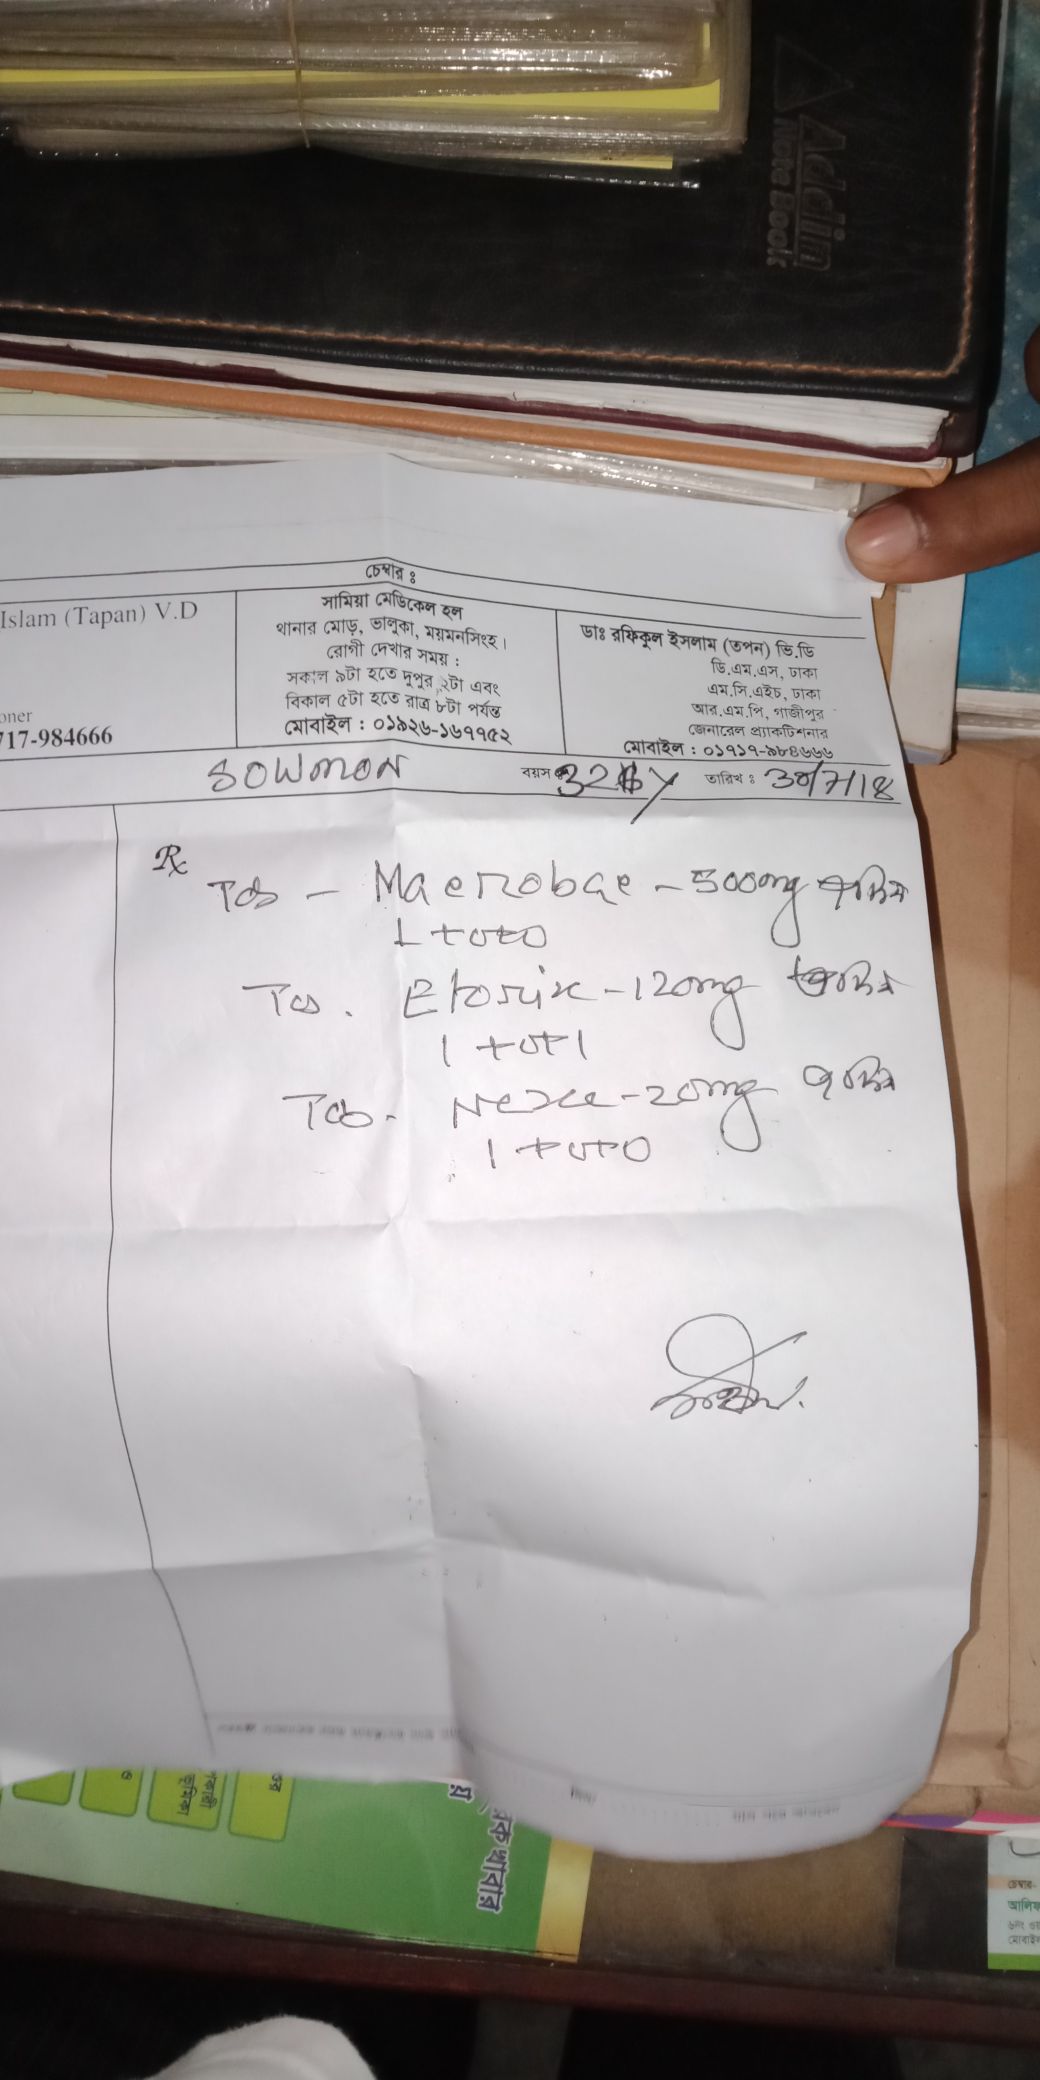 Addin
Note Book
চেম্বার ঃ
Islam (Tapan) V.D
oner
717-984666
সামিয়া মেডিকেল হল
থানার মোড়, ভালুকা, ময়মনসিংহ।
রোগী দেখার সময় :
সকাল ৯টা হতে দুপুর ২টা এবং
বিকাল ৫টা হতে রাত্র ৮টা পর্যন্ত
মোবাইল : ০১৯২৬-১৬৭৭৫২
ডাঃ রফিকুল ইসলাম (তপন) ভি.ডি
ডি.এম.এস, ঢাকা
এম.সি.এইচ, ঢাকা
আর.এম.পি, গাজীপুর
জেনারেল প্র্যাকটিশনার
মোবাইল : ০১৭১৭-৯৮৪৬৬৬
SOWMON বয়স ঃ 32 y তারিখ ঃ 30/7/18
Rx
Tab - Macrobac - 500mg
1+0+0
Tab. Etorix - 120mg
1+0+1
Tab. Nexe - 20mg
1+0+0
রক খাবার
চেম্বার-